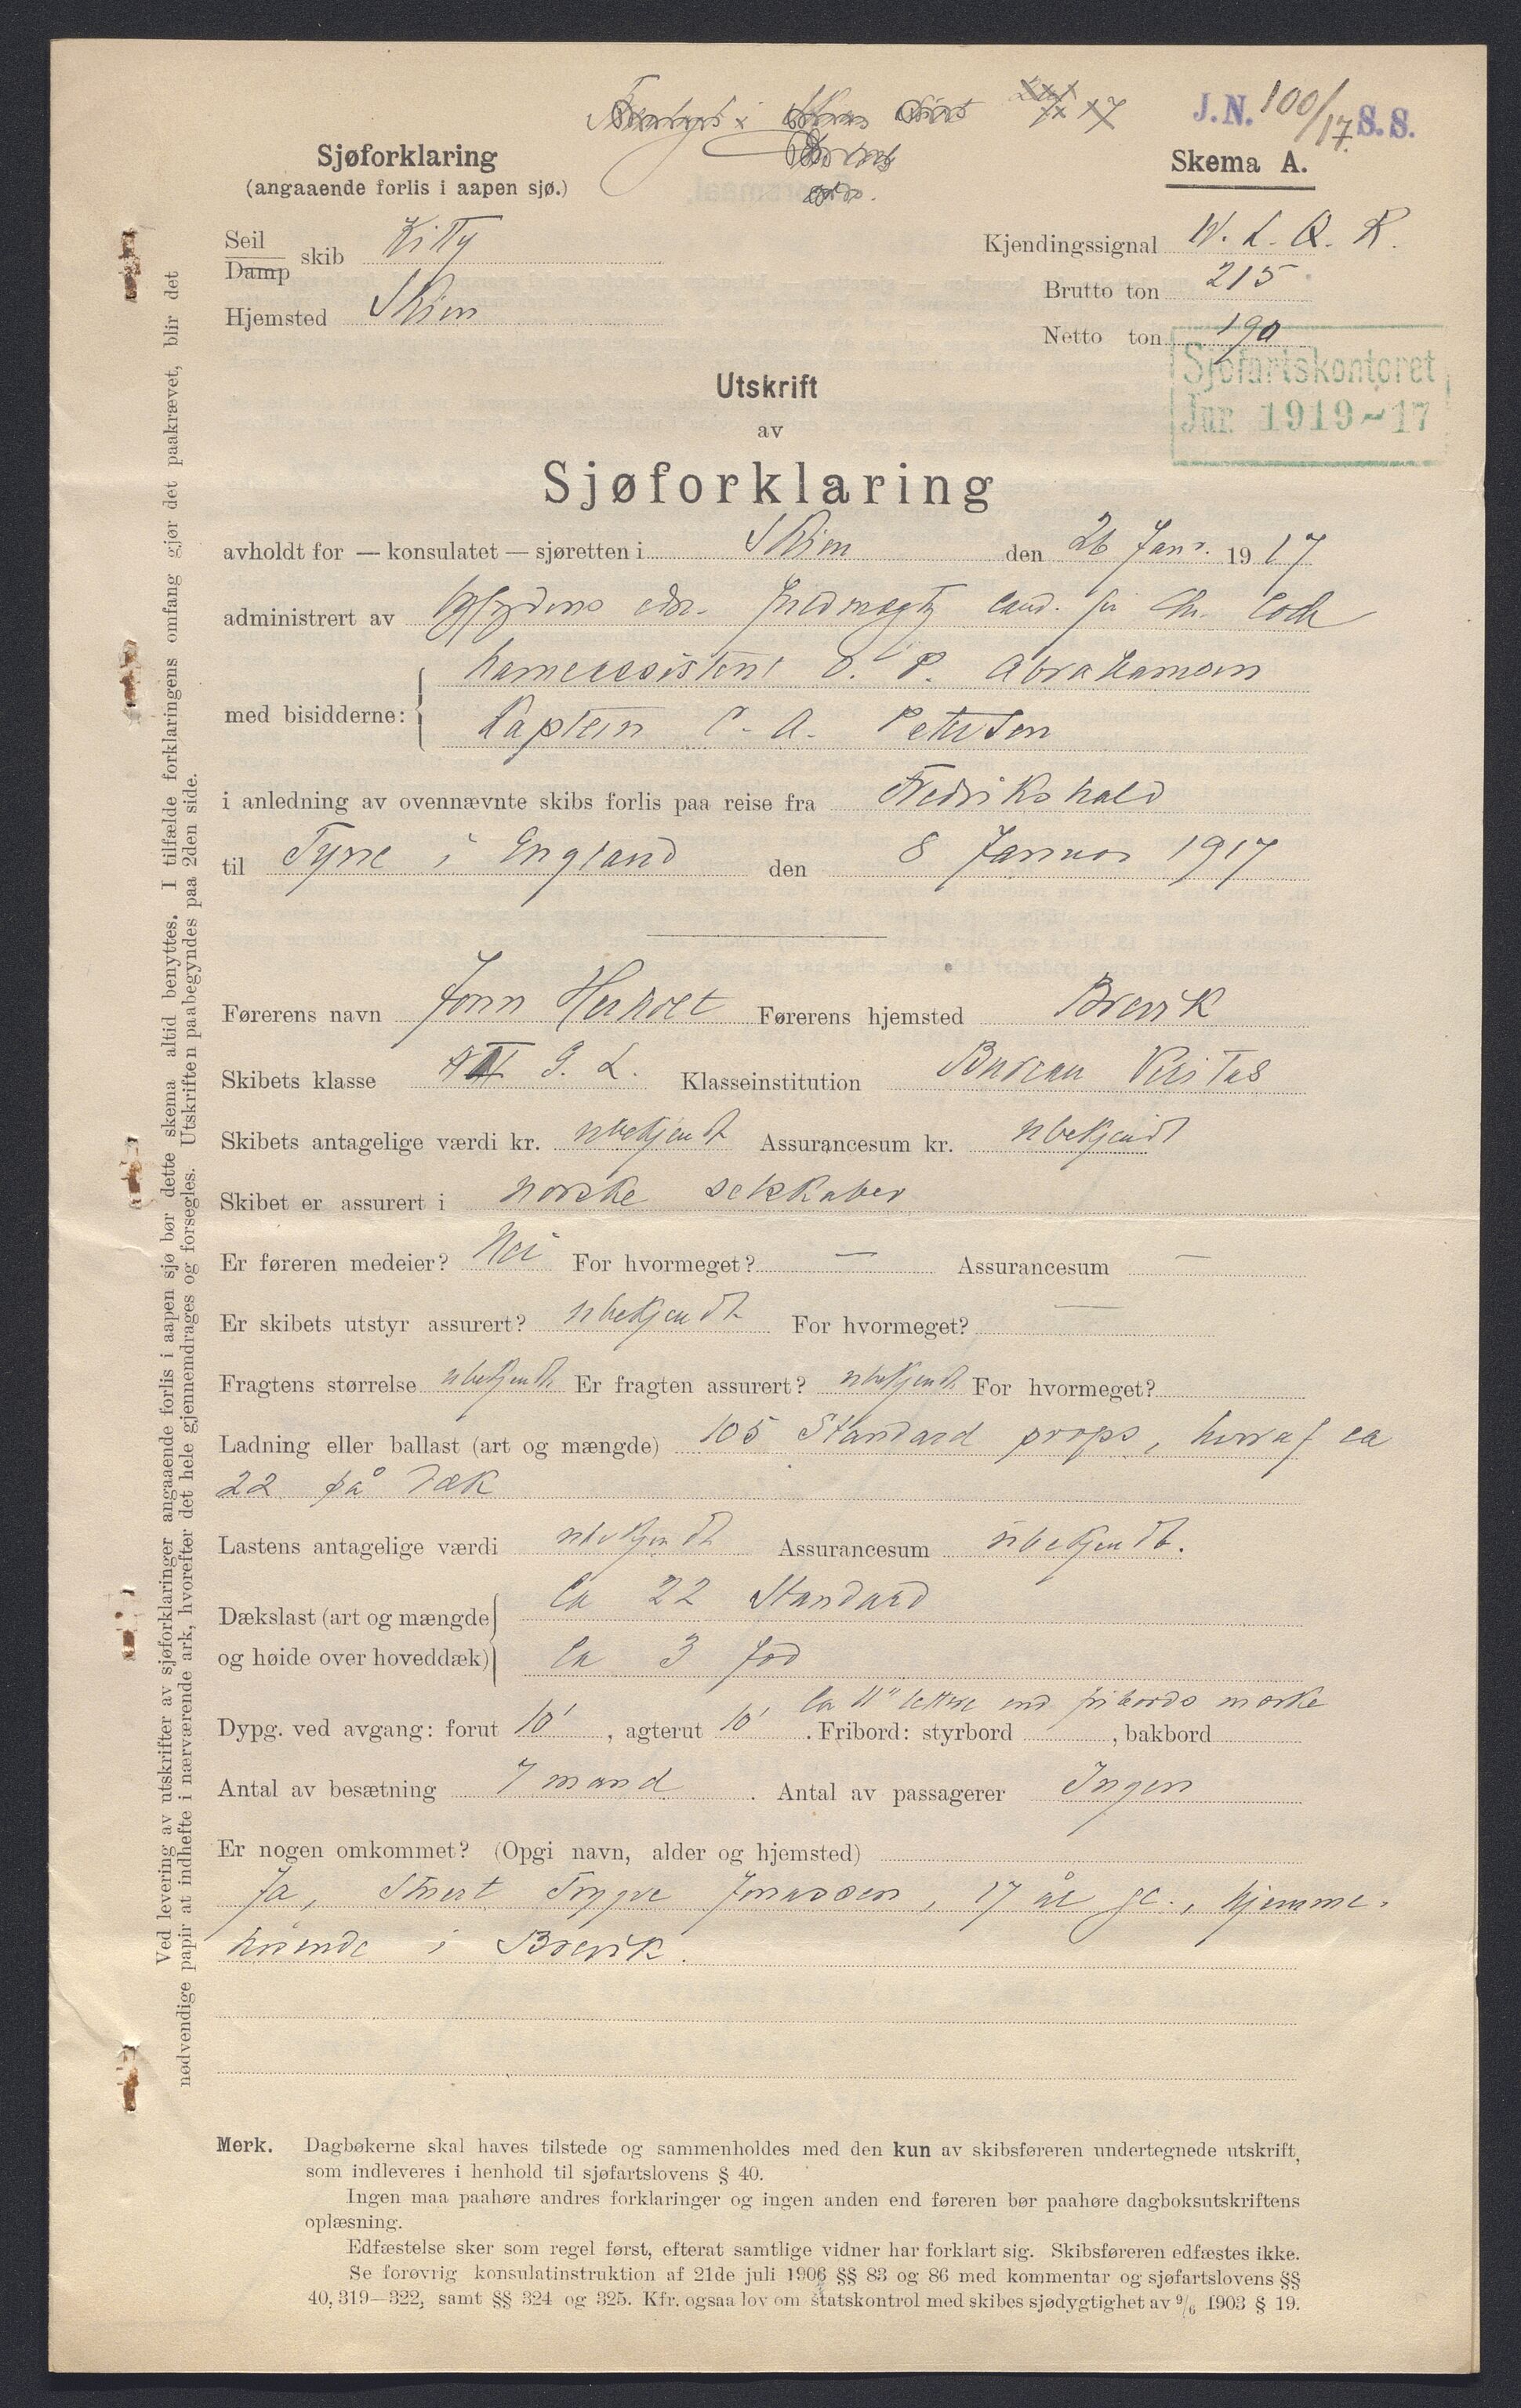 J.N. 100/17. S.S.
Sjøforklaring
(angaaende forlis i aapen sjø.)
Skema A.
Seil
Damp skib Kitty
Kjendingssignal W. L. Q. R.
Brutto ton 215
Hjemsted Skien
Netto ton 190
Sjøfartskontoret
Jnr. 1919-17
Utskrift
av
Sjøforklaring
avholdt for — konsulatet — sjøretten i Skien den 26 Janr. 1917
administrert av edsv. fuldmægtig cand. jur. Chr.
med bisidderne: havneassistent O. P. Abrahamsen
Kaptein C. A. Petersen
i anledning av ovennævnte skibs forlis paa reise fra Fredrikshald
til Tyne i England den 8 Januar 1917
Førerens navn John Førerens hjemsted Brevik
Skibets klasse G. L. Klasseinstitution Bureau Veritas
Skibets antagelige værdi kr. ubekjendt Assurancesum kr. ubekjendt
Skibet er assurert i norske selskaber
Er føreren medeier? Nei For hvormeget? — Assurancesum —
Er skibets utstyr assurert? ubekjendt For hvormeget? —
Fragtens størrelse ubekjendt Er fragten assurert? ubekjendt For hvormeget?
Ladning eller ballast (art og mængde) 105 Standard props, herraf ca
22 på dæk
Lastens antagelige værdi ubekjendt Assurancesum ubekjendt.
Dækslast (art og mængde Ca 22 Standard
og høide over hoveddæk) Ca 3 fod
Ca 11" lettere end fribords mærke
Dypg. ved avgang: forut 10', agterut 10'. Fribord: styrbord , bakbord
Antal av besætning 7 mand. Antal av passagerer Ingen
Er nogen omkommet? (Opgi navn, alder og hjemsted)
Ja, Trygve Jonassen, 17 år gl., hjemme-
hørende i Brevik.
Merk. Dagbøkerne skal haves tilstede og sammenholdes med den kun av skibsføreren undertegnede utskrift,
som indleveres i henhold til sjøfartslovens § 40.
Ingen maa paahøre andres forklaringer og ingen anden end føreren bør paahøre dagboksutskriftens
oplæsning.
Edfæstelse sker som regel først, efterat samtlige vidner har forklart sig. Skibsføreren edfæstes ikke.
Se forøvrig konsulatinstruktion af 21de juli 1906 §§ 83 og 86 med kommentar og sjøfartslovens §§
40, 319—322, samt §§ 324 og 325. Kfr. ogsaa lov om statskontrol med skibes sjødygtighet av 9/6 1903 § 19.
Ved levering av utskrifter av sjøforklaringer angaaende forlis i aapen sjø bør dette skema altid benyttes. I tilfælde forklaringens omfang gjør det paakrævet, blir det
nødvendige papir at indhefte i nærværende ark, hvorefter det hele gjennemdrages og forsegles. Utskriften paabegyndes paa 2den side.